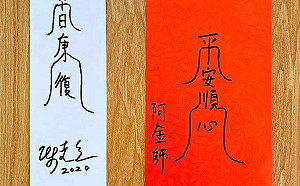 早日康復
2020
平安順心
阿金師